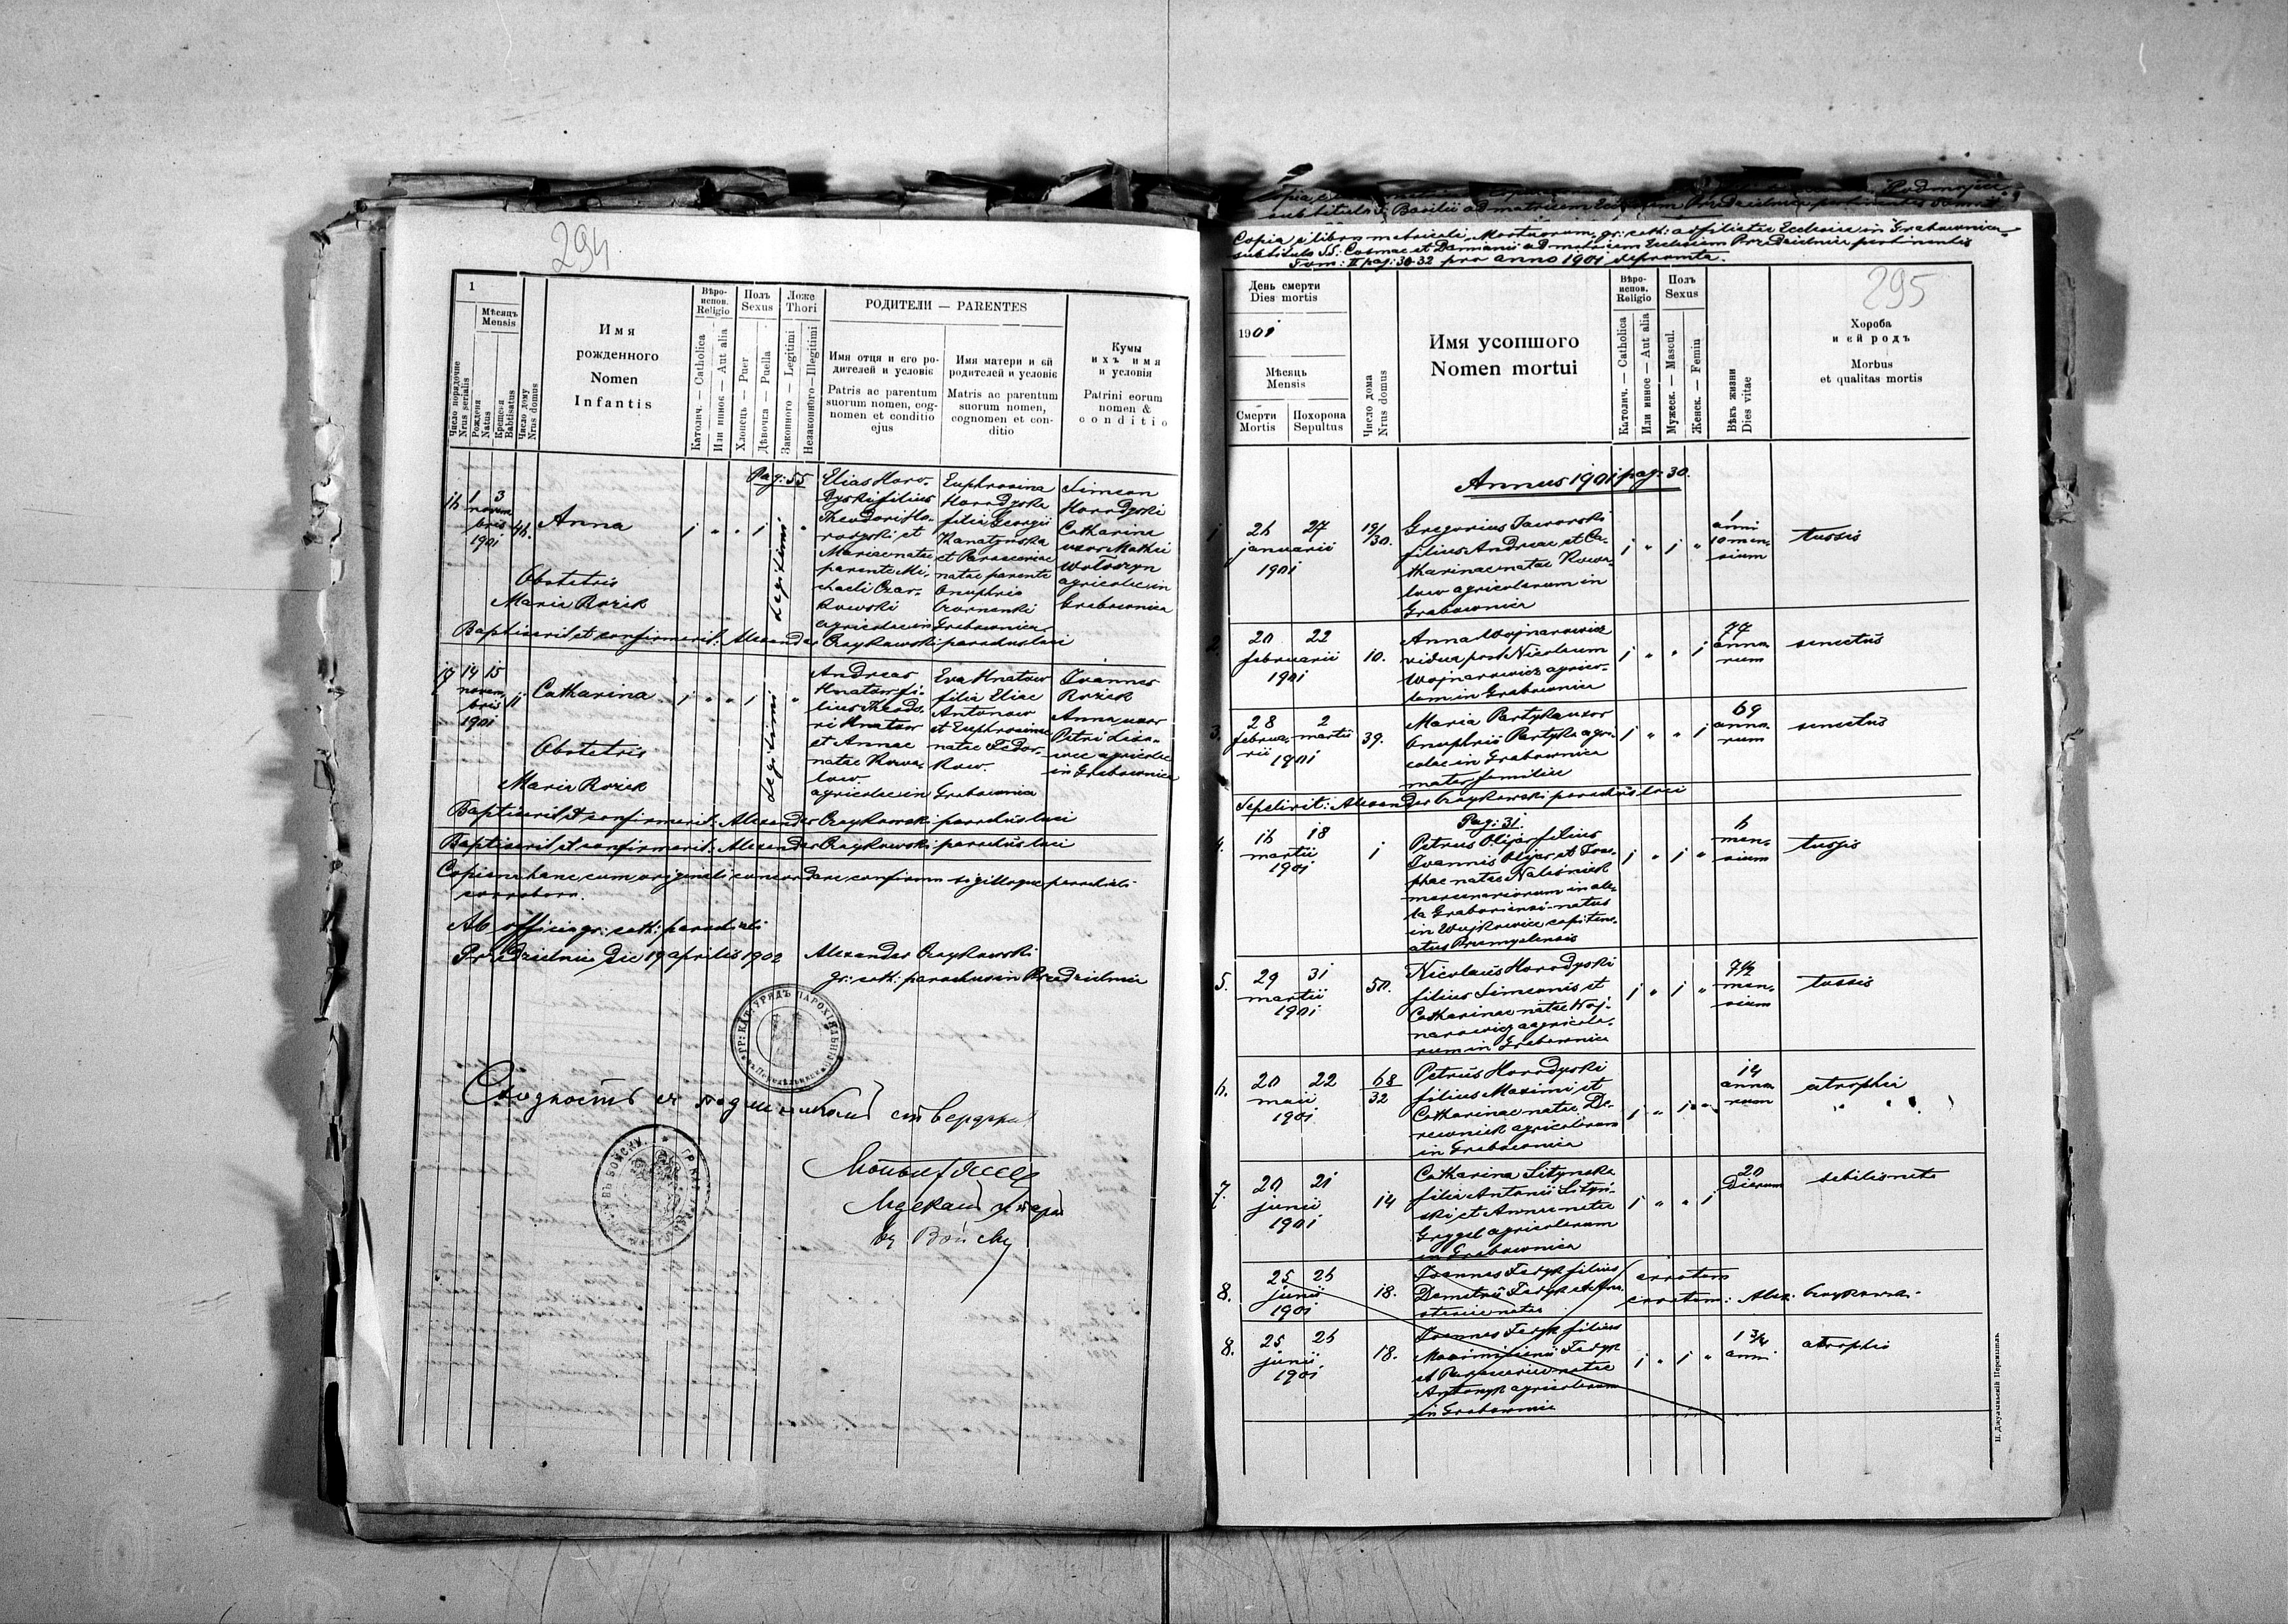 294
1
Мѣсяцъ
Mensis
Число порядочне
Nrus serialis
Рожденя
Natus
Крещеня
Babtisatus
Число дому
Nrus domus
Имя
рожденного
Nomen
Infantis
Вѣро-
испов.
Religio
Католич. — Catholica
Или инноє — Aut alia
Полъ
Sexus
Хлопець — Puer
Дѣвочка — Puella
Ложе
Thori
Законного — Legitimi
Незаконнѣго — Illegitimi
РОДИТЕЛИ — PARENTES
Имя отця и єго ро-
дителей и условіє
Patris ac parentum
suorum nomen, cog-
nomen et conditio
ejus
Имя матери и єй
родителей и условіє
Matris ac parentum
suorum nomen,
cognomen et con-
ditio
Кумы
ихъ имя
и условія
Patrini eorum
nomen &
conditio
Pag: 55
16
1 3
novem
bris
1901
46.
Anna
j " " j
Legitimi
"
Elias Horo-
dyski filius
Theodori Ho-
rodyski et
Mariae natae
parente Mi-
chaeli Czar-
kowski
agricolae in
Euphrosina
Horodyska
filia Georgii
et Parasceviae
natae parente
Onuphrio
Grabownica
Simeon
Horodyski
Catharina
uxor Mathei
Wołoszyn
agricolae in
Grabownica
Obstetrix
Maria Rożek
Baptisavit et confirmavit: Alexander Czajkowski parochus loci
17
14 15
novem
bris
1901
11
Catharina
j " " j
Legitimi
"
Andreas
Hnatow fi-
lius Theodo-
ri Hnatow
et Annae
natae Kowa-
low.
agricolae in
Eva Hnatow
filia Eliae
Antonow
et Euphrosinae
natae Fedor-
kow.
Grabownica
Ioannes
Rożek
Anna uxor
Petri
agricolae
in Grabownica
Obstetrix
Maria Rożek
Baptisavit et confirmavit: Alexander Czajkowski parochus loci
Baptisavit et confirmavit: Alexander Czajkowski parochus loci
Copiam hanc cum originali concordare confirmo sigilloque parochiali
corroboro.
Ab officio gr: cath: parochiali
Przedzielnica Die 19 aprilis 1902
Alexander Czajkowski
gr: cath: parochus in Przedzielnica
ГР: КАТ: УРЯДЪ ПАРОХІЯЛЬНЫЙ
Сходность съ подлинникомъ ствердж
въ Войску
ВЪ ВОЙСКУ. * ГР. КАТ.
Copia e libro metricali Mortuorum gr: cath: adfiliatae Ecclesiae in Grabownica
subtitulo SS: Cosmae et Damianii ad matricem Ecclesiam Przedzielnica pertinentis
Tom: II pag: 30-32 pro anno 1901 deprompta.
295
День смерти
Dies mortis
1901
Мѣсяць
Mensis
Смерти
Mortis
Похорона
Sepultus
Число дома
Nrus domus
Имя усопшого
Nomen mortui
Вѣро-
испов.
Religio
Католич. — Catholica
Или инноє — Aut alia
Полъ
Sexus
Мужеск. — Mascul.
Женск. — Femin
Вѣкъ жизни
Dies vitae
Хороба
и єй родъ
Morbus
et qualitas mortis
Annus 1901 pag: 30.
1
26 27
januarii
1901
19/30.
Gregorius Jaworski
filius Andreae et Ca-
tharinae natae Kowa-
low agricolarum in
Grabownica
j " j "
1
anni
10 men-
sium
tussis
2.
20 22
februarii
1901
10.
Anna Wojnarowicz
vidua post Nicolaum
Wojnarowicz agrico-
lam in Grabownica
j " " j
77
anno-
rum
senectus
3.
28 2
februa- martii
rii
1901
39.
Maria Partyka uxor
Onuphrii Partyka agri-
colae in Grabownica
mater familiae
j " " j
69
anno-
rum
senectus
Sepelivit: Alexander Czajkowski parochus loci
Pag: 31.
4.
16 18
martii
1901
1
Petrus Olijar filius
Ioannis Olijar et Jose-
phae natae Naliśnik
mercenariorum in
natus
in Wujkowice capitane-
atus Przemyslensis
j " j "
6
men-
sium
tussis
5.
29 31
martii
1901
50.
Nicolaus Horodyski
filius Simeonis et
Catharinae natae Woj-
narowicz agricola-
rum in Grabownica
j " j "
7 1/2
men-
sium
tussis
6.
20 22
maii
1901
68
32
Petrus Horodyski
filius Maximi et
Catharinae natae De-
rewniak agricolarum
in Grabownica
j " j "
14
anno-
rum
atrophia
7.
20 21
junii
1901
14
Catharina Lityńska
filia Antonii Lityń-
ski et Annae natae
Grygel agricolarum
in Grabownica
j " " j
20
dierum
debilismata
8.
25 26
junii
1901
18.
Ioannes Fedyk filius
Demetrii Fedyk et Ana-
stasiae natae
erratum
erratum: Alex: Czajkowski
8.
25 26
junii
1901
18.
Ioannes Fedyk filius
Maximiliani Fedyk
et Parasceviae natae
Antonyk agricolarum
in Grabownica
j " j "
1 3/4
anni
atrophia
Н. Джулыньскій Перемышль